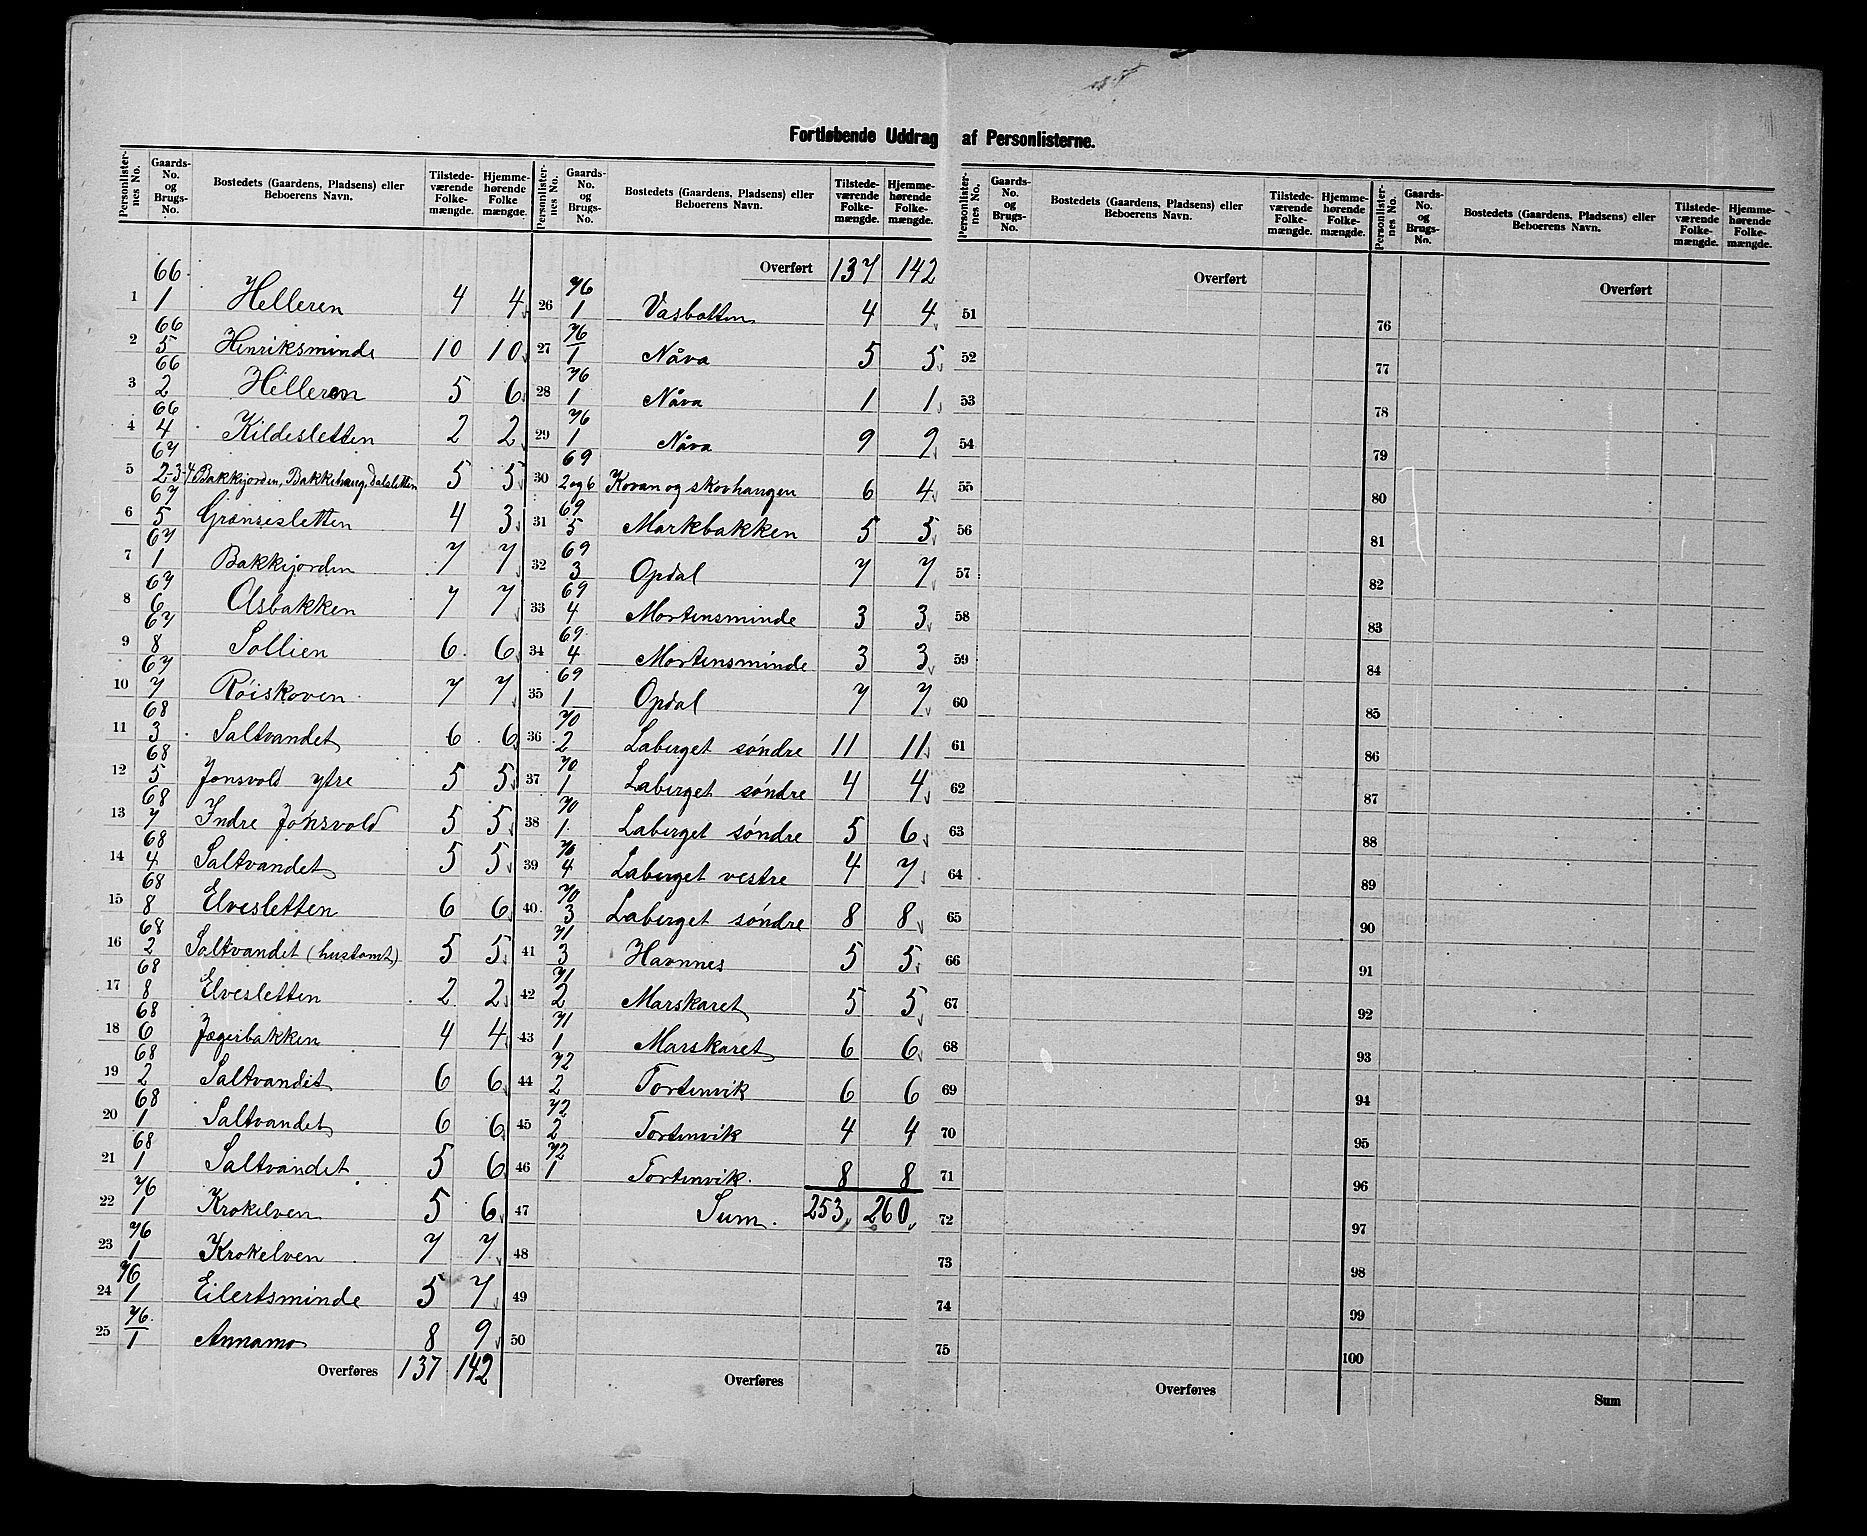 Fortløbende Uddrag af Personlisternе.
Personlister-nes No. | Gaards-No. og Brugs-No. | Bostedets (Gaardens, Pladsens) eller Beboerens Navn. | Tilstede-værende Folke-mængde. | Hjemme-hørende Folke mængde.
1 | 66 1 | Helleren | 4 | 4
2 | 66 5 | Henriksminde | 10 | 10
3 | 66 2 | Helleren | 5 | 6
4 | 66 4 | Kildesletten | 2 | 2
5 | 67 2-3-4 | Bakkejorden, Bakkehaug, Dalsletten | 5 | 5
6 | 67 5 | Grænsesletten | 4 | 3
7 | 67 1 | Bakkejorden | 7 | 7
8 | 67 6 | Olsbakken | 7 | 7
9 | 67 8 | Sollien | 6 | 6
10 | 67 7 | Røiskoven | 7 | 7
11 | 68 3 | Saltvandet | 6 | 6
12 | 68 5 | Jonsvold ytre | 5 | 5
13 | 68 7 | Indre Jonsvold | 5 | 5
14 | 68 4 | Saltvandet | 5 | 5
15 | 68 8 | Elvesletten | 6 | 6
16 | 68 2 | Saltvandet (hustomt) | 5 | 5
17 | 68 8 | Elvesletten | 2 | 2
18 | 68 6 | Jægerbakken | 4 | 4
19 | 68 2 | Saltvandet | 6 | 6
20 | 68 1 | Saltvandet | 6 | 6
21 | 68 1 | Saltvandet | 5 | 6
22 | 76 1 | Krokelven | 5 | 6
23 | 76 1 | Krokelven | 7 | 7
24 | 76 1 | Eilertsminde | 5 | 7
25 | 76 1 | Annamo | 8 | 9
Overføres | 137 | 142
Personlister-nes No. | Gaards-No. og Brugs-No. | Bostedets (Gaardens, Pladsens) eller Beboerens Navn. | Tilstede-værende Folke-mængde. | Hjemme-hørende Folke-mængde.
Overført | 137 | 142
26 | 76 1 | Vasbotten | 4 | 4
27 | 76 1 | Nåva | 5 | 5
28 | 76 1 | Nåva | 1 | 1
29 | 76 1 | Nåva | 9 | 9
30 | 69 2 og 6 | Kovan og skovhaugen | 6 | 4
31 | 69 5 | Markbakken | 5 | 5
32 | 69 3 | Opdal | 7 | 7
33 | 69 4 | Mortensminde | 3 | 3
34 | 69 4 | Mortensminde | 3 | 3
35 | 69 1 | Opdal | 7 | 7
36 | 70 2 | Laberget søndre | 11 | 11
37 | 70 1 | Laberget søndre | 4 | 4
38 | 70 1 | Laberget søndre | 5 | 6
39 | 70 4 | Laberget vestre | 4 | 7
40 | 70 3 | Laberget søndre | 8 | 8
41 | 71 3 | Havnnes | 5 | 5
42 | 71 2 | Marskaret | 5 | 5
43 | 71 1 | Marskaret | 6 | 6
44 | 72 2 | Tortenvik | 6 | 6
45 | 72 2 | Tortenvik | 4 | 4
46 | 72 1 | Tortenvik. | 8 | 8
47 | Sum. | 253 | 260
48
49
50
Overføres
Personlister-nes No. | Gaards-No. og Brugs-No. | Bostedets (Gaardens, Pladsens) eller Beboerens Navn. | Tilstede-værende Folke-mængde. | Hjemme-hørende Folke-mængde.
Overført
51
52
53
54
55
56
57
58
59
60
61
62
63
64
65
66
67
68
69
70
71
72
73
74
75
Overføres
Personlister-nes No. | Gaards-No. og Brugs-No. | Bostedets (Gaardens, Pladsens) eller Beboerens Navn. | Tilstede-værende Folke-mængde. | Hjemme-hørende Folke-mængde.
Overført
76
77
78
79
80
81
82
83
84
85
86
87
88
89
90
91
92
93
94
95
96
97
98
99
100
Sum